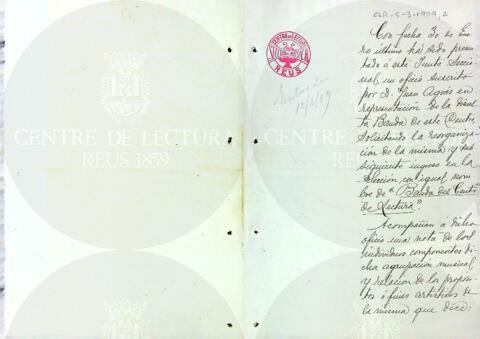 CLR-5-3-1909, 2
CENTRO DE LECTURA
REUS
Entrada
12/2/09
CENTRE DE LECTURA
REUS 1859
CENTRE DE LECTURA
REUS 1859
Con fecha 30 de Ene
ro último ha sido presen
tado á esta Junta Seccio
nal un oficio suscrito
por D. Juan Agnés en
representación de la disuel
ta Banda de este Centro,
solicitando la reorganiza
ción de la misma y sub
siguiente ingreso en la
Sección, con igual nom
bre de "Banda del Centro
de Lectura".
Acompañan á dicho
oficio una nota de los
individuos componentes di
cha agrupación musical
y relación de los propósi
tos ó fines artísticos de
la misma que dice: